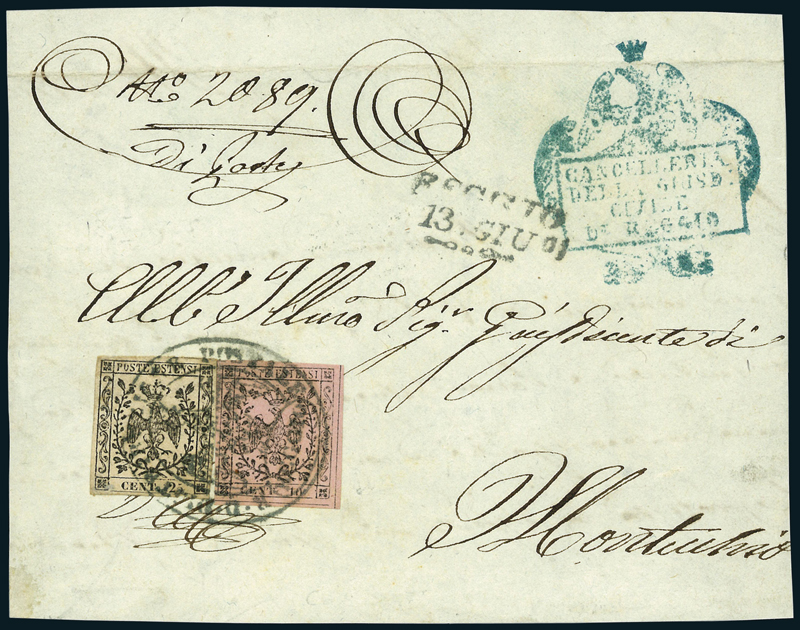 No 2089.
Di
CANCELLERIA
DELLA GIUSD.
CIVILE
DI REGGIO
REGGIO
13 GIU
All' Illmo Sigr Giusdicente di
POSTE ESTENSI POSTE ESTENSI
CENT. 2 CENT. 10
Montecchio